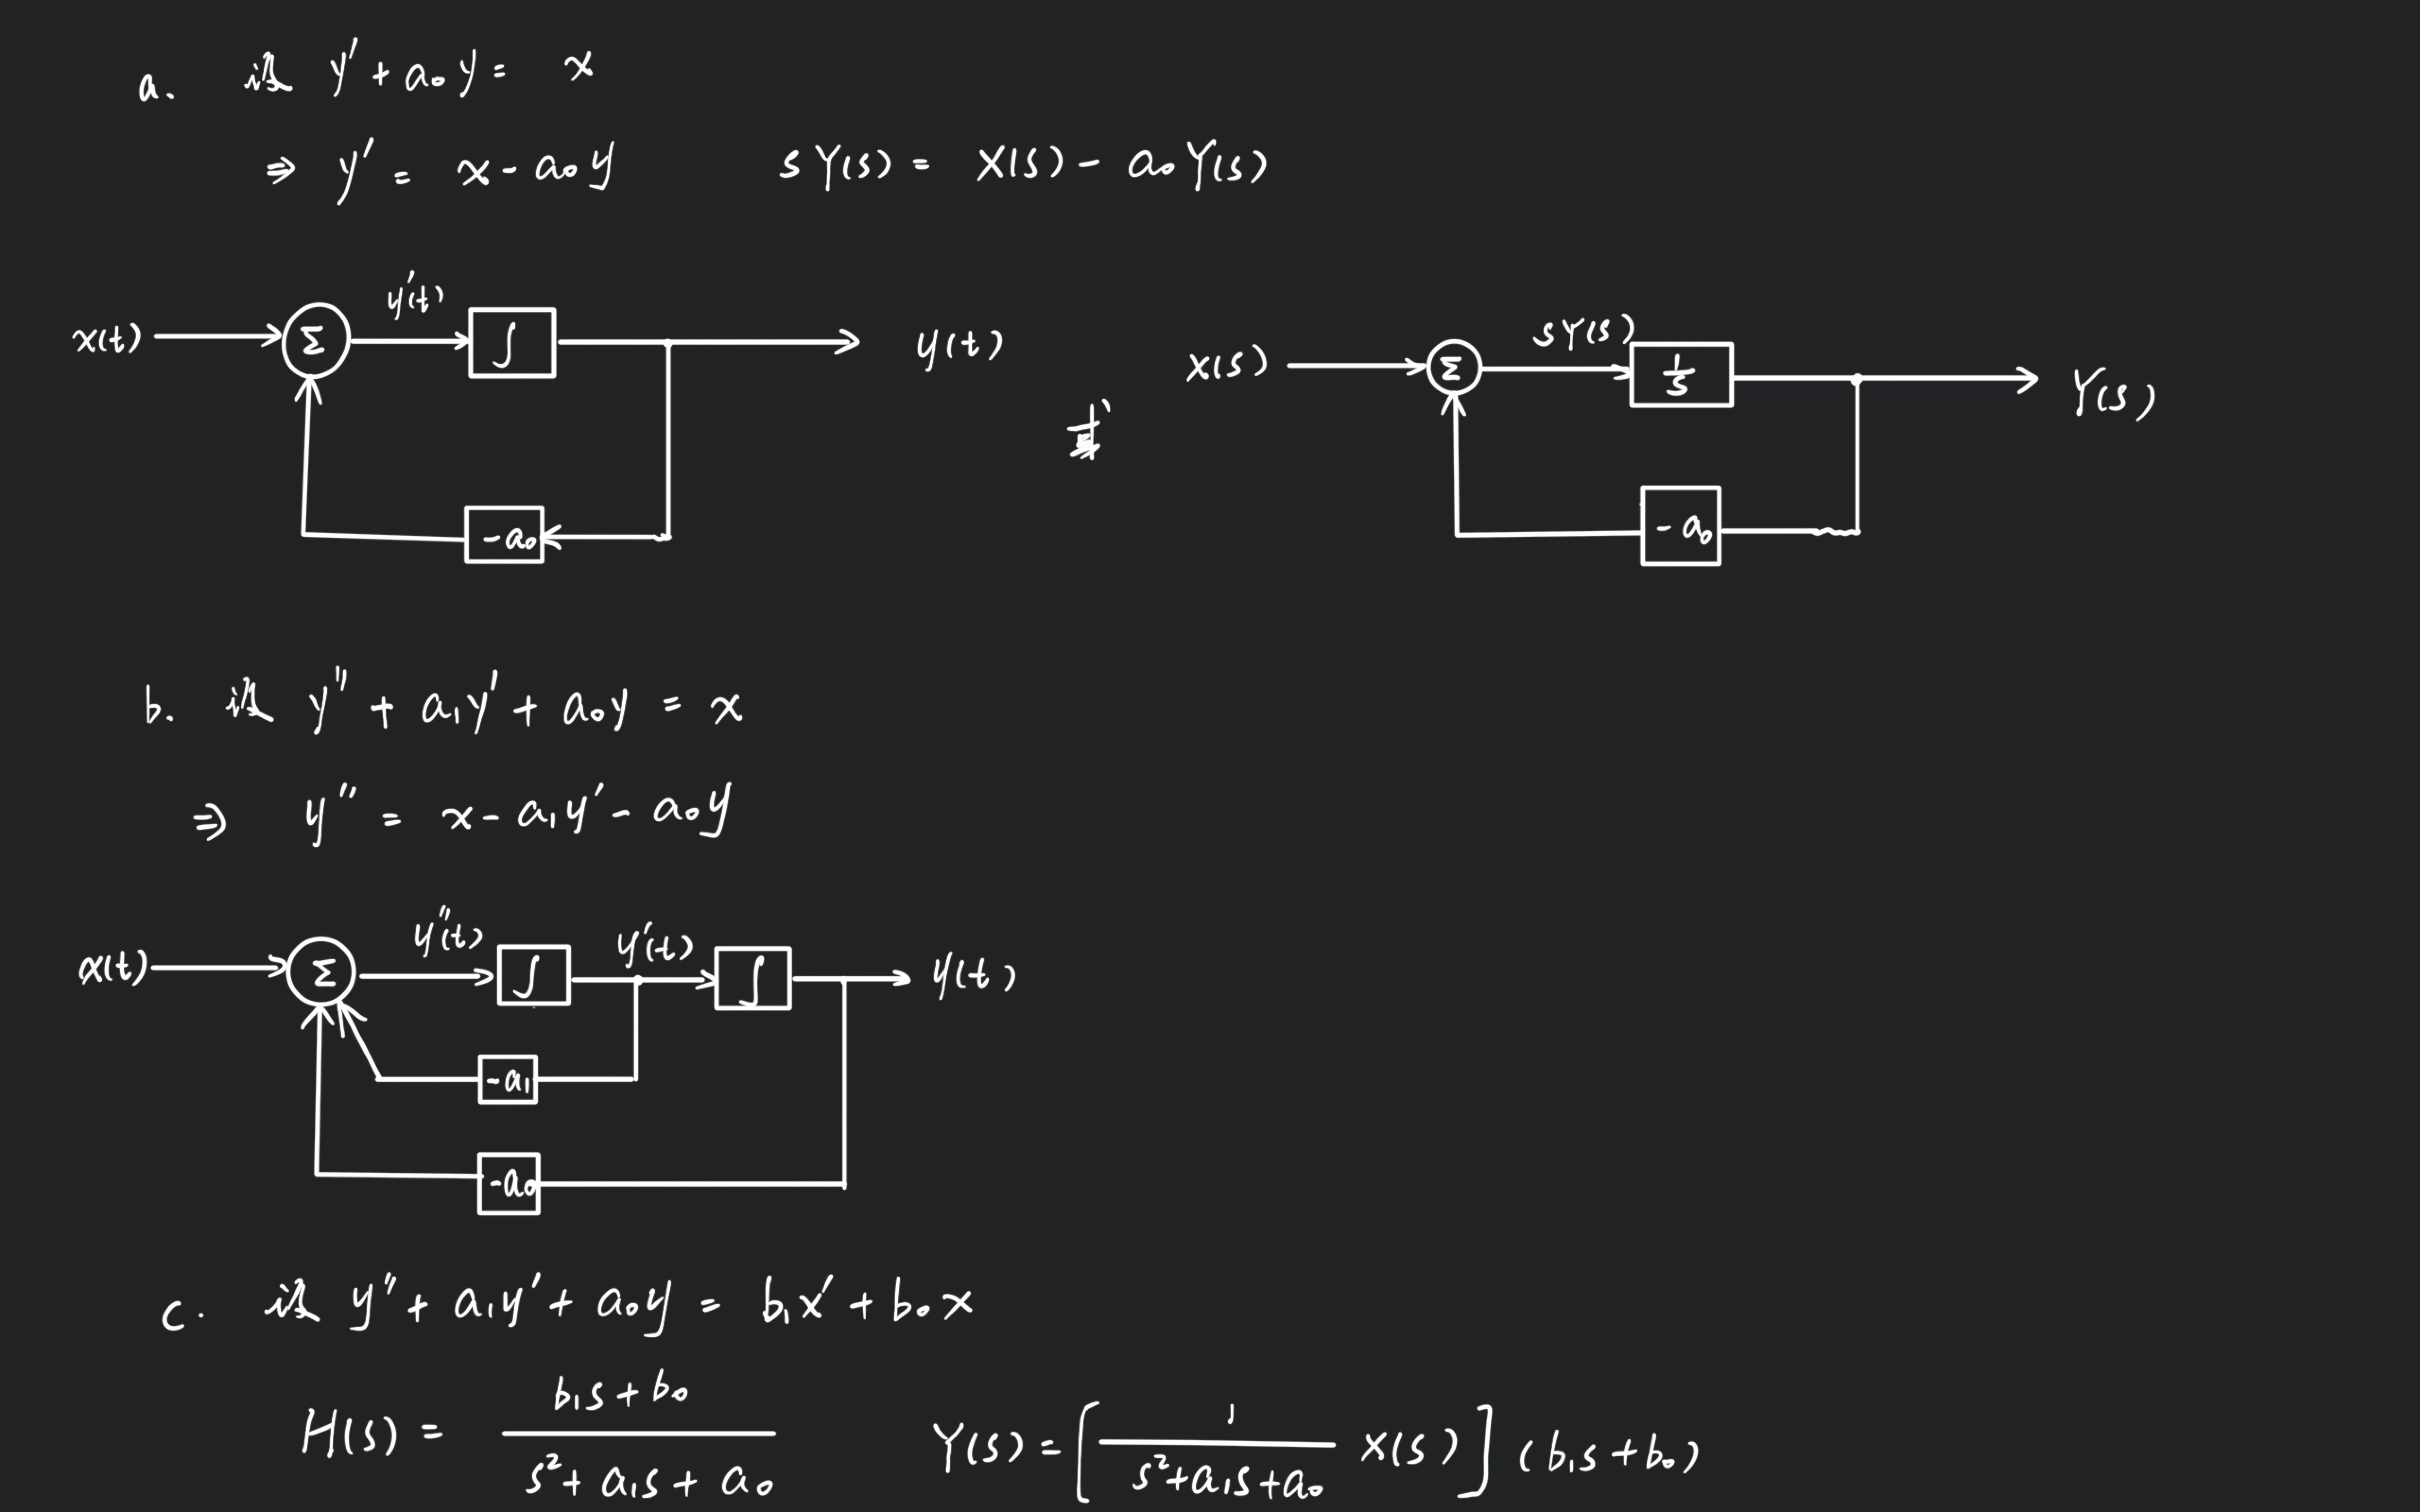 a. 设 y' + a₀y = x
⇒ y' = x - a₀y    sY(s) = X(s) - a₀Y(s)
x(t) Σ y'(t) ∫ y(t)
-a₀
X(s) Σ sY(s) 1/s Y(s)
-a₀
b. 设 y'' + a₁y' + a₀y = x
⇒ y'' = x - a₁y' - a₀y
x(t) Σ y''(t) ∫ y'(t) ∫ y(t)
-a₁
-a₀
c. 设 y'' + a₁y' + a₀y = b₁x' + b₀x
H(s) = (b₁s + b₀)/(s² + a₁s + a₀)    Y(s) = [1/(s² + a₁s + a₀) X(s)] (b₁s + b₀)